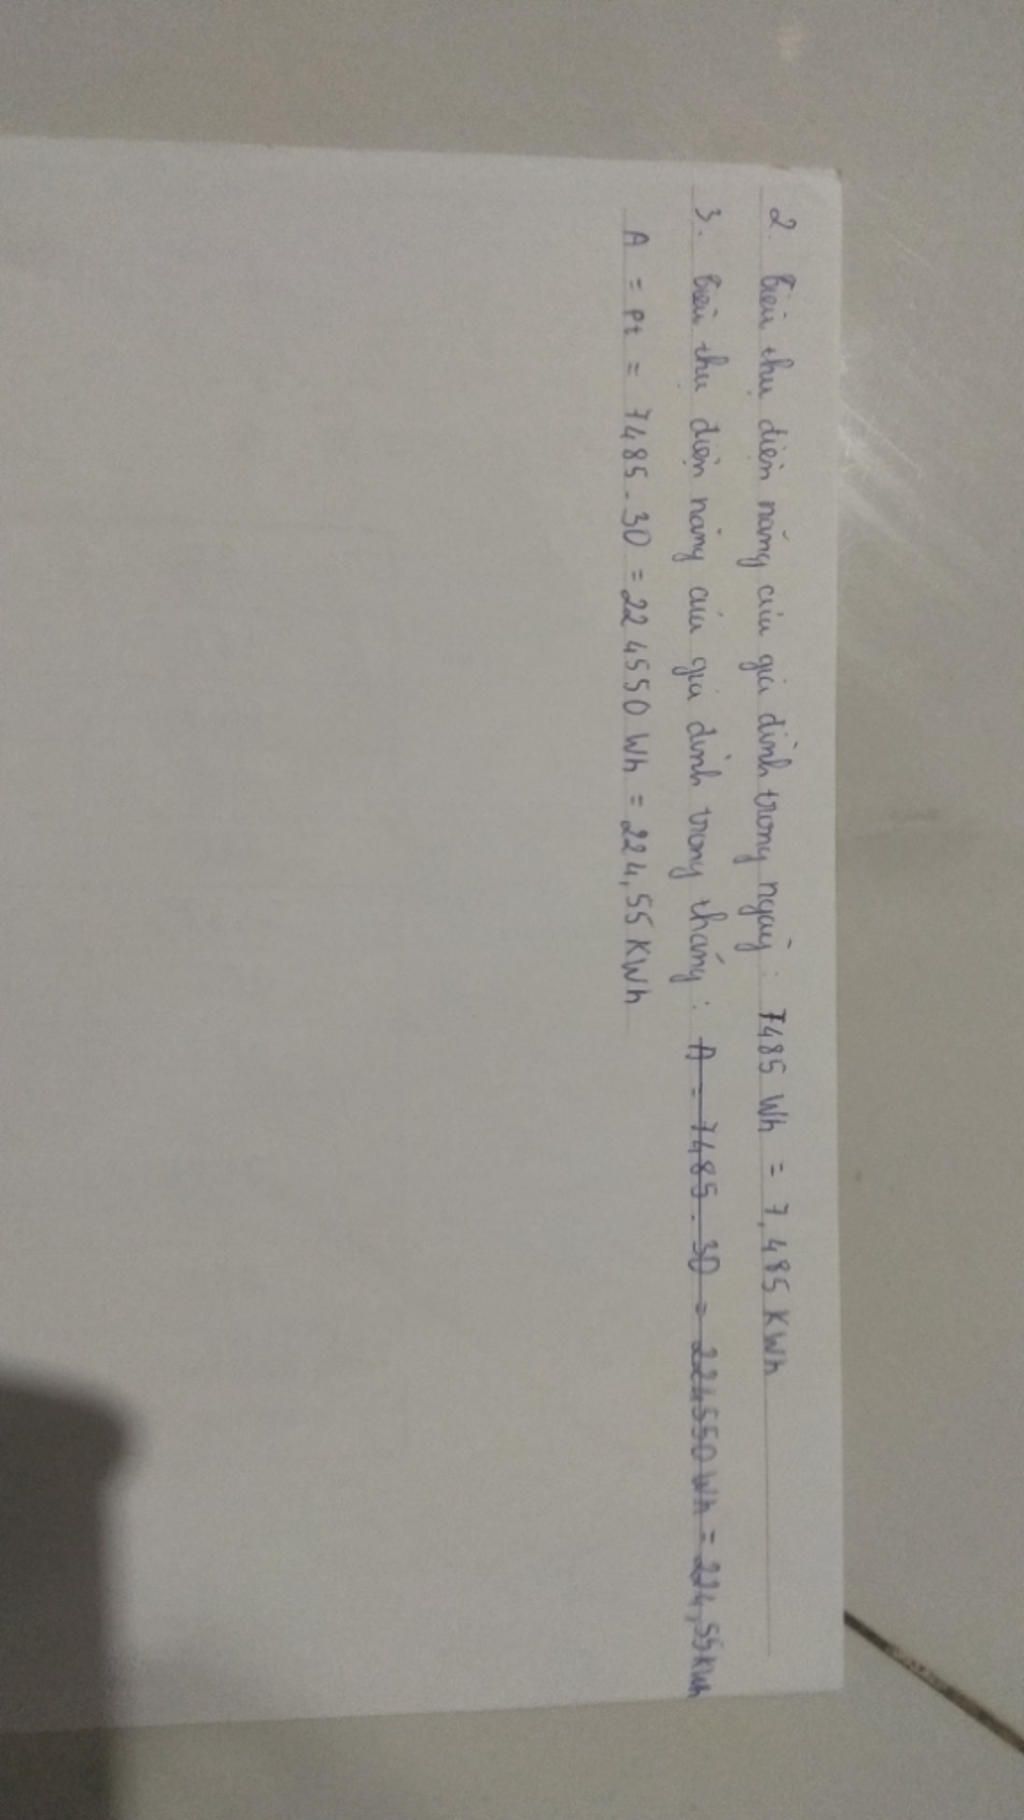 2. Tiêu thụ điện năng của gia đình trong ngày: 7485 Wh = 7,485 KWh
3. Tiêu thụ điện năng của gia đình trong tháng: A = 7485.30 = 224550 Wh = 224,55 KWh
A = Pt = 7485.30 = 224550 Wh = 224,55 KWh